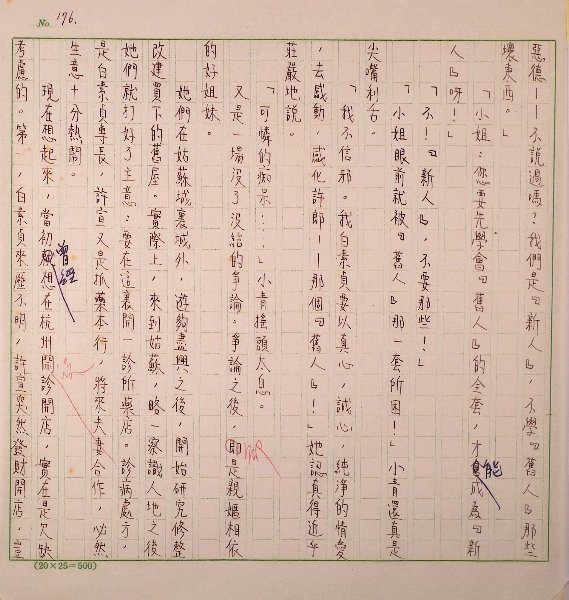 No. 176.
惡德——不說過嗎？我們是『新人』，不學『舊人』那些
壞東西。」
「小姐：你要先學會『舊人』的全套，才能成為『新
人』呀！」
「不！『新人』，不要那些！」
「小姐眼前就被『舊人』那一套所困！」小青還真是
尖嘴利舌。
「我不信邪。我白素貞要以真心，誠心，純淨的情愛
，去感動，感化許郎——那個『舊人』！」她認真得近乎
莊嚴地說。
「可憐的痴呆……」小青搖頭太息。
又是一場沒了沒結的爭論。爭論之後，卻是親嫗相依
的好姐妹。
她們在姑蘇城裏城外，遊夠盡興之後，開始研究修整
改建買下的舊屋。實際上，來到姑蘇，略一察識人地之後
她們就打好了主意：要在這裏開一診所藥店。診病處方，
是白素貞專長，許宣又是抓藥本行，將來夫妻合作，必然
生意十分熱鬧。
現在想起來，當初曾經想在杭州開診開店，實在是欠缺
考慮的。第一，白素貞來歷不明，許宣突然發財開店，豈
(20×25=500)